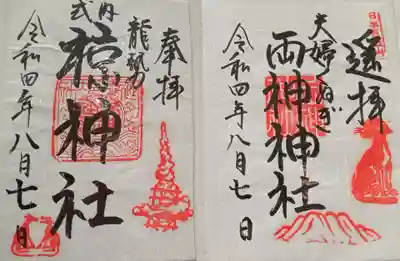 遥拝
夫婦くぬぎ
両神神社
令和四年八月七日
奉拝
龍勢の
式内
椋神社
令和四年八月七日